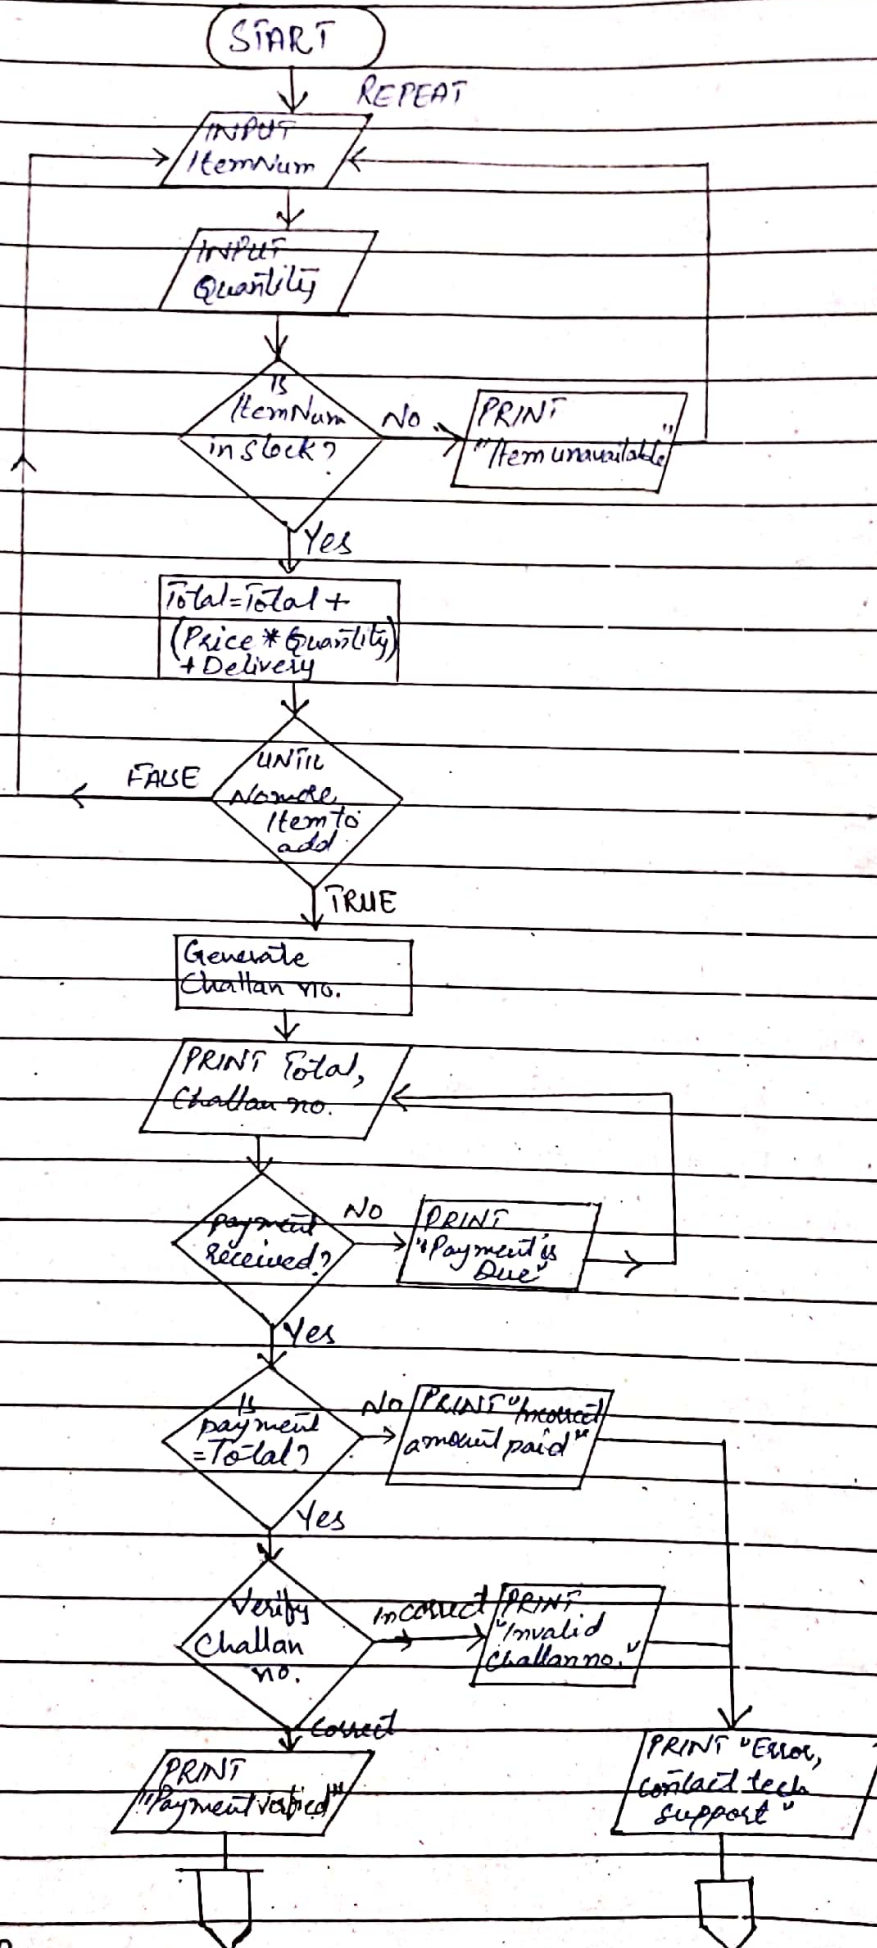 START
REPEAT
INPUT
ItemNum
INPUT
Quantity
Is
ItemNum
in stock?
No
PRINT
"Item unavailable"
Yes
Total=Total +
(Price * Quantity)
+ Delivery
UNTIL
No more
Item to
add
FALSE
TRUE
Generate
Challan no.
PRINT Total,
Challan no.
payment
received?
NO
PRINT
"Payment is
Due"
Yes
Is
payment
=Total?
NO
PRINT "Incorrect
amount paid"
Yes
Verify
Challan
no.
incorrect
PRINT
"Invalid
Challan no."
correct
PRINT
"Payment verfied"
PRINT "Error,
contact tech
support"